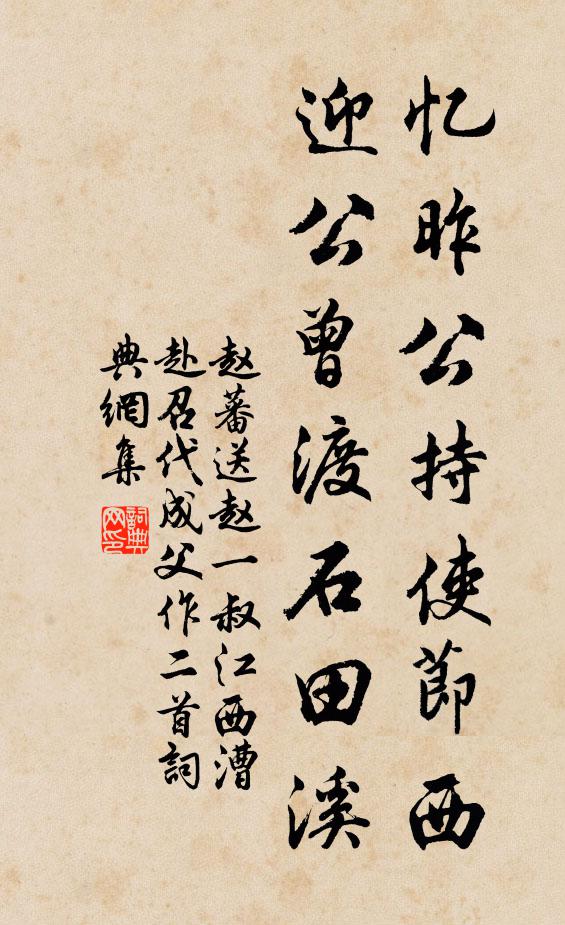 忆昨公持使节西
迎公曾渡石田溪
赵蕃送赵一叔江西漕
赴召代成父作二首詞
典網集
詞典网印